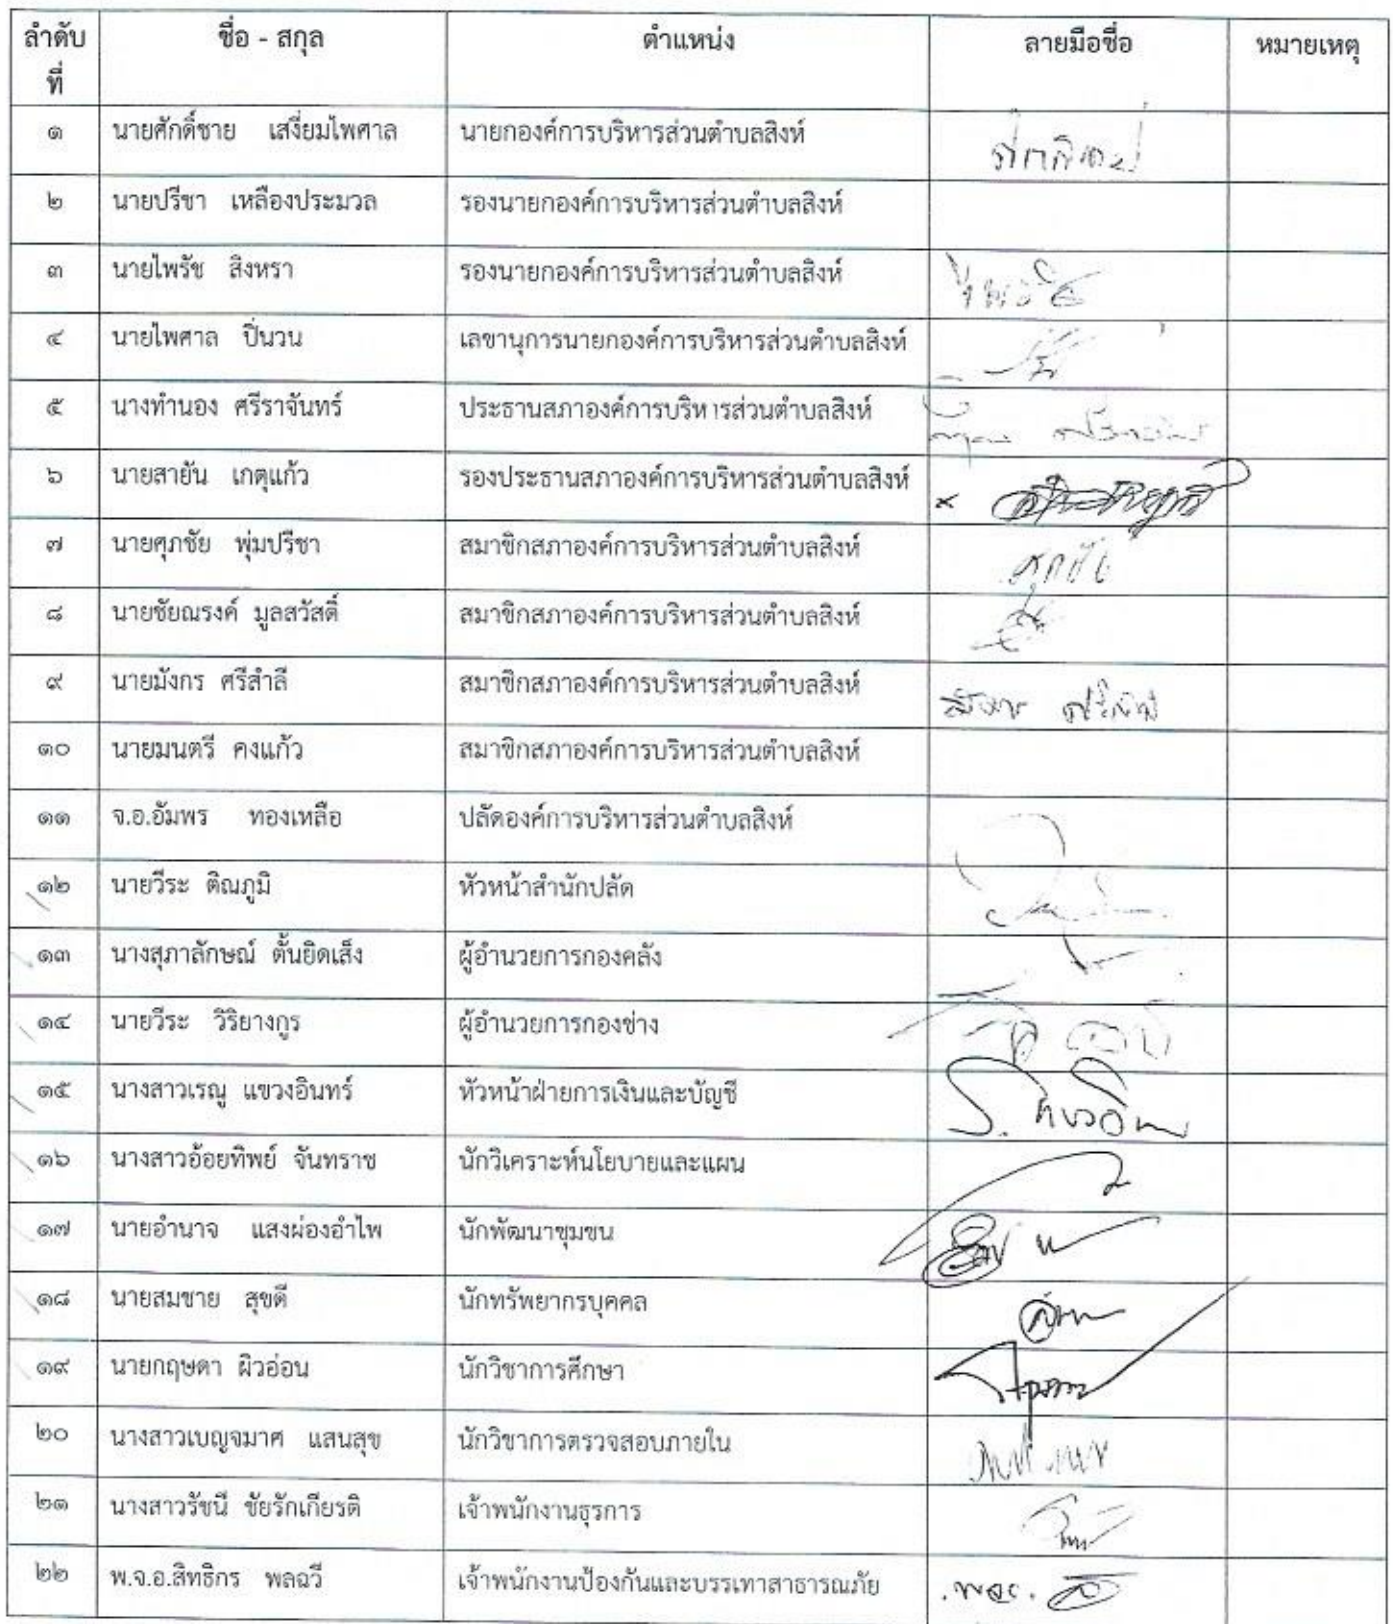 ลำดับที่ ชื่อ - สกุล ตำแหน่ง ลายมือชื่อ หมายเหตุ
๑ นายศักดิ์ชาย เสงี่ยมไพศาล นายกองค์การบริหารส่วนตำบลสิงห์
๒ นายปรีชา เหลืองประมวล รองนายกองค์การบริหารส่วนตำบลสิงห์
๓ นายไพรัช สิงหรา รองนายกองค์การบริหารส่วนตำบลสิงห์
๔ นายไพศาล ปิ่นวน เลขานุการนายกองค์การบริหารส่วนตำบลสิงห์
๕ นางทำนอง ศรีราจันทร์ ประธานสภาองค์การบริหารส่วนตำบลสิงห์
๖ นายสายัน เกตุแก้ว รองประธานสภาองค์การบริหารส่วนตำบลสิงห์
๗ นายศุภชัย พุ่มปรีชา สมาชิกสภาองค์การบริหารส่วนตำบลสิงห์ ศุภชัย
๘ นายชัยณรงค์ มูลสวัสดิ์ สมาชิกสภาองค์การบริหารส่วนตำบลสิงห์
๙ นายมังกร ศรีสำลี สมาชิกสภาองค์การบริหารส่วนตำบลสิงห์ มังกร ศรีสำลี
๑๐ นายมนตรี คงแก้ว สมาชิกสภาองค์การบริหารส่วนตำบลสิงห์
๑๑ จ.อ.อัมพร ทองเหลือ ปลัดองค์การบริหารส่วนตำบลสิงห์
๑๒ นายวีระ ติณภูมิ หัวหน้าสำนักปลัด
๑๓ นางสุภาลักษณ์ ตั้นยิดเส็ง ผู้อำนวยการกองคลัง
๑๔ นายวีระ วิริยางกูร ผู้อำนวยการกองช่าง
๑๕ นางสาวเรณู แขวงอินทร์ หัวหน้าฝ่ายการเงินและบัญชี
๑๖ นางสาวอ้อยทิพย์ จันทราช นักวิเคราะห์นโยบายและแผน
๑๗ นายอำนาจ แสงผ่องอำไพ นักพัฒนาชุมชน
๑๘ นายสมชาย สุขดี นักทรัพยากรบุคคล
๑๙ นายกฤษดา ผิวอ่อน นักวิชาการศึกษา
๒๐ นางสาวเบญจมาศ แสนสุข นักวิชาการตรวจสอบภายใน
๒๑ นางสาวรัชนี ชัยรักเกียรติ เจ้าพนักงานธุรการ
๒๒ พ.จ.อ.สิทธิกร พลฉวี เจ้าพนักงานป้องกันและบรรเทาสาธารณภัย